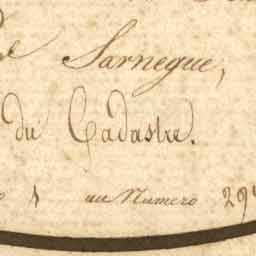 Sarnegue,
du Cadastre.
au Numero 29